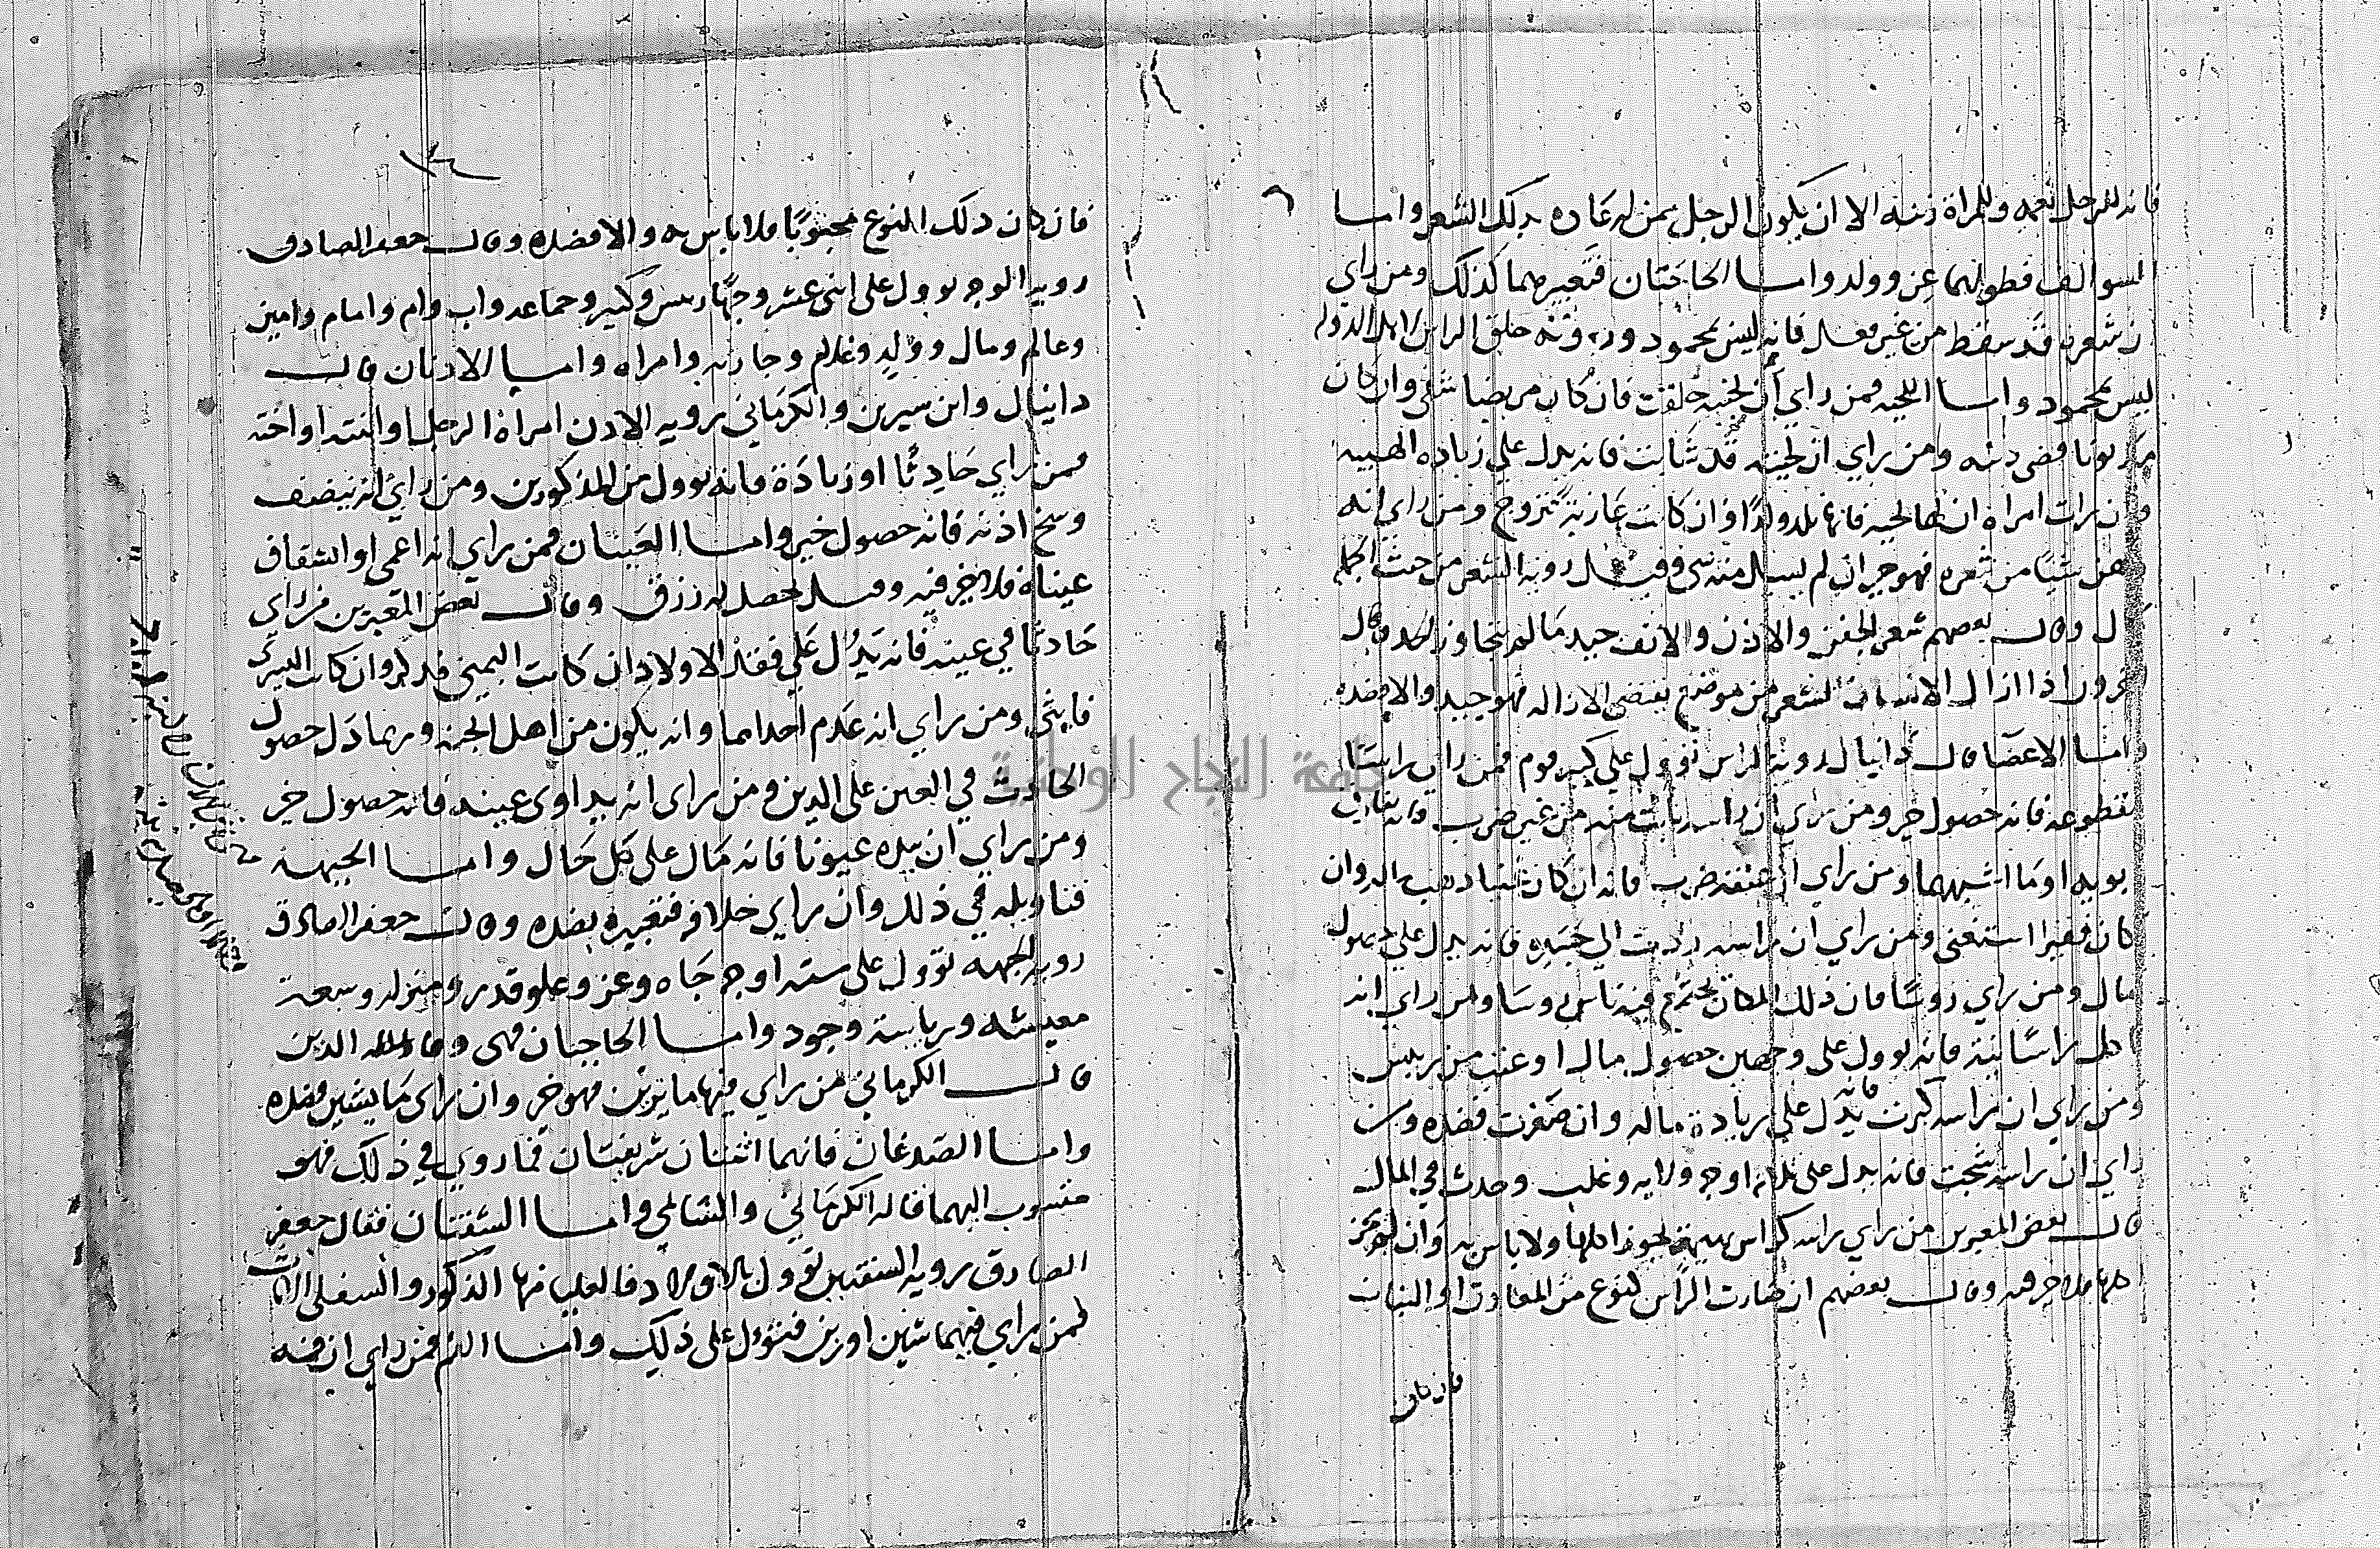 فانه للرجل نعمه وللمراة زينه الا ان يكون الرجل ممن له عاده بذلك الشعر واما
السوالف فطولهما عز وولد واما الحاجتان فتعبيرهما كذلك ومن راي
ان شعره قد سقط من غير فعل فانه ليس بمحمود وروية حلق الراس لاهل الدوله
ليس بمحمود واما اللحيه فمن راي ان لحيته حلقت فان كان مريضا شفي وان كان
مديونا قضي دينه ومن راي ان لحيته قد شابت فانه يدل علي زياده الهيبه
وان رات امراة ان لها لحيه فانها تلد ولدا وان كانت عازبة تتزوج ومن راي انه
دهن شيا من شعره فهو خير ان لم يسيل منه شي وقيل روية الشعر من حيث الجمله
مال وقال بعضهم شعر الجفن والاذن والانف جيد مالم يتجاوز الحد وقال
اذا ازال الانسان الشعر من موضع يقتضي الازاله فهو جيد والا فضده
واما الاعضا قال دانيال روية الراس تؤول علي كبير قوم فمن راي راسا
مقطوعه فانه حصول خير ومن راي ان راسه بانت منه من غير ضرب فانه يفارق
ابويه او ما اشبههما ومن راي ان عنقه ضرب فانه ان كان غنيا ذهب ماله وان
كان فقيرا استغني ومن راي ان راسه ردت الي جسده فانه يدل علي حصول
مال ومن راي روسا فان ذلك المكان يجتمع فيه ناس روسا ومن راي انه
اكل راسا نية فانه يؤول علي وجهين حصول مال او عتب من رييس
ومن راي ان راسه كبرت فانه يدل علي زيادة ماله وان صغرت فضده ومن
راي ان راسه شجت فانه يدل علي ثلاثة اوجه ولايه وغلب وحدث في المال
قال بعض المعبرين من راي راسه كراس بهيمة يجوز اكلها ولا باس به وان لم يجز
اكلها فلا خير فيه وقال بعضهم ان صارت الراس كنوع من المعادن او النبات
فان كان
فان كان ذلك النوع محبوبا فلا باس به والا فضده وقال جعفر الصادق
روية الوجه يؤول علي اثني عشر وجها رييس وكبير وجماعه واب وام وامام وامين
وعالم ومال وولد وغلام وجاريه وامراه واما الاذنان قال
دانيال وابن سيرين والكرماني روية الاذن امراة الرجل او ابنته او اخته
فمن راي حادثا او زيادة فانه يؤول من المذكورين ومن راي انه ينضف
وسخ اذنه فانه حصول خير واما العينان فمن راي انه اعمي او انشقاق
عيناه فلا خير فيه وقيل يحصل له رزق وقال بعض المعبرين من راي
حادثا في عينه فانه يدل علي فقد الاولاد ان كانت اليمني فذكر وان كانت اليسري
فانثي ومن راي انه عدم احداهما وانه يكون من اهل الجنه وربما دل حصول
الحادث في العين علي الدين ومن راي انه يداوي عينه فانه حصول خير
ومن راي ان بيده عيونا فانه مال علي كل حال واما الجبهه
فتاويله في ذلك وان راي خلافه فتعبيره بضده وقال جعفر الصادق
روية الجبهه تؤول علي ستة اوجه جاه وعز وعلو قدر ومنزله وسعة
معيشه ورياسة وجود واما الحاجبان فهي وقار الدين
قال الكرماني من راي فيهما ما يزين فهو خير وان راي ما يشين فضده
واما الصدغان فانهما اثنتان شريفتان فما روي في ذلك فهو
منسوب اليهما قاله الكرماني والسالمي واما الشفتان فقال جعفر
الصادق روية الشفتين تؤول بالاولاد فالعليا منها الذكور والسفلي الاناث
فمن راي فيهما شين او زين فتؤول علي ذلك واما الفم فمن راي ان فمه
جامعة النجاح الوطنية